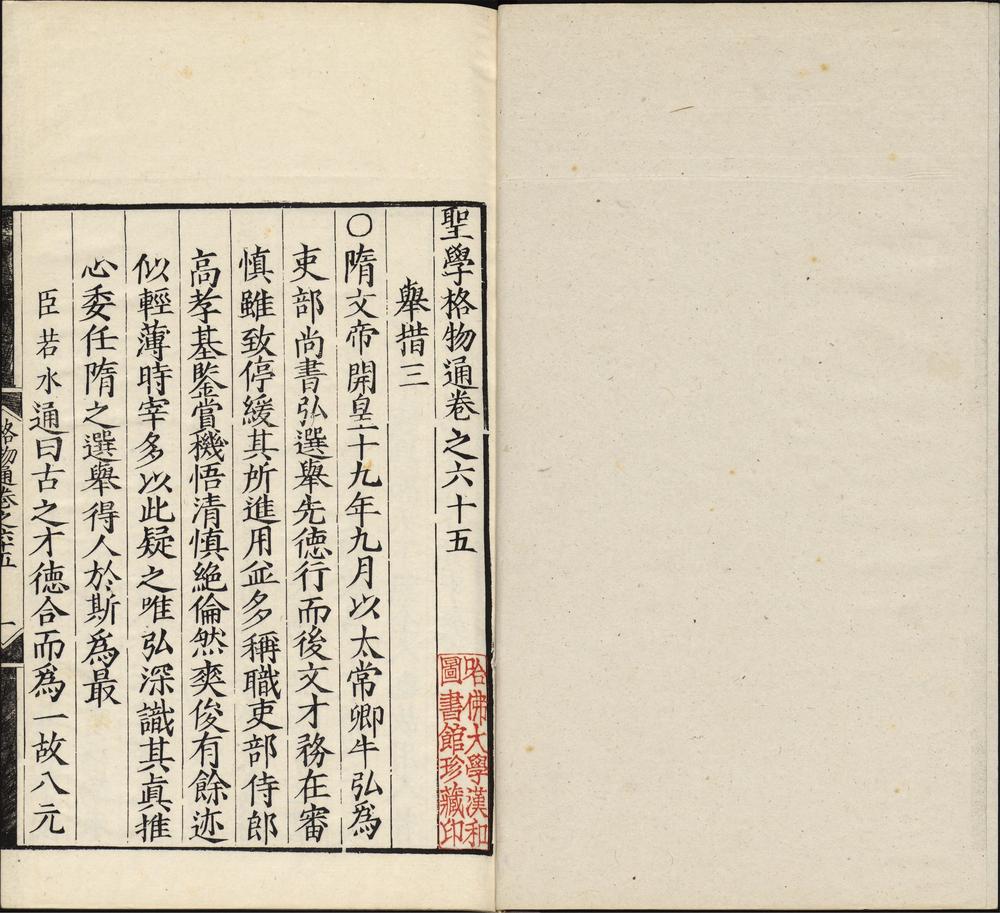 聖學格物通卷之六十五
舉措三
○隋文帝開皇十九年九月以太常卿牛弘爲
吏部尚書弘選舉先德行而後文才務在審
慎雖致停緩其所進用並多稱職吏部侍郎
高孝基鑒賞機悟清慎絕倫然爽俊有餘迹
似輕薄時宰多以此疑之唯弘深識其眞推
心委任隋之選舉得人於斯爲最
臣若水通曰古之才德合而爲一故八元
格物通卷之六十五
一
哈佛大學漢和
圖書館珍藏印